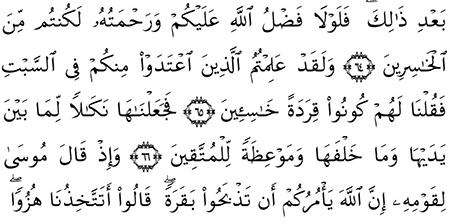 بَعْدِ ذَٰلِكَ ۖ فَلَوْلَا فَضْلُ ٱللَّهِ عَلَيْكُمْ وَرَحْمَتُهُۥ لَكُنتُم مِّنَ
ٱلْخَـٰسِرِينَ ٦٤ وَلَقَدْ عَلِمْتُمُ ٱلَّذِينَ ٱعْتَدَوْا۟ مِنكُمْ فِى ٱلسَّبْتِ
فَقُلْنَا لَهُمْ كُونُوا۟ قِرَدَةً خَـٰسِـِٔينَ ٦٥ فَجَعَلْنَـٰهَا نَكَـٰلًا لِّمَا بَيْنَ
يَدَيْهَا وَمَا خَلْفَهَا وَمَوْعِظَةً لِّلْمُتَّقِينَ ٦٦ وَإِذْ قَالَ مُوسَىٰ
لِقَوْمِهِۦٓ إِنَّ ٱللَّهَ يَأْمُرُكُمْ أَن تَذْبَحُوا۟ بَقَرَةً ۖ قَالُوٓا۟ أَتَتَّخِذُنَا هُزُوًا ۖ